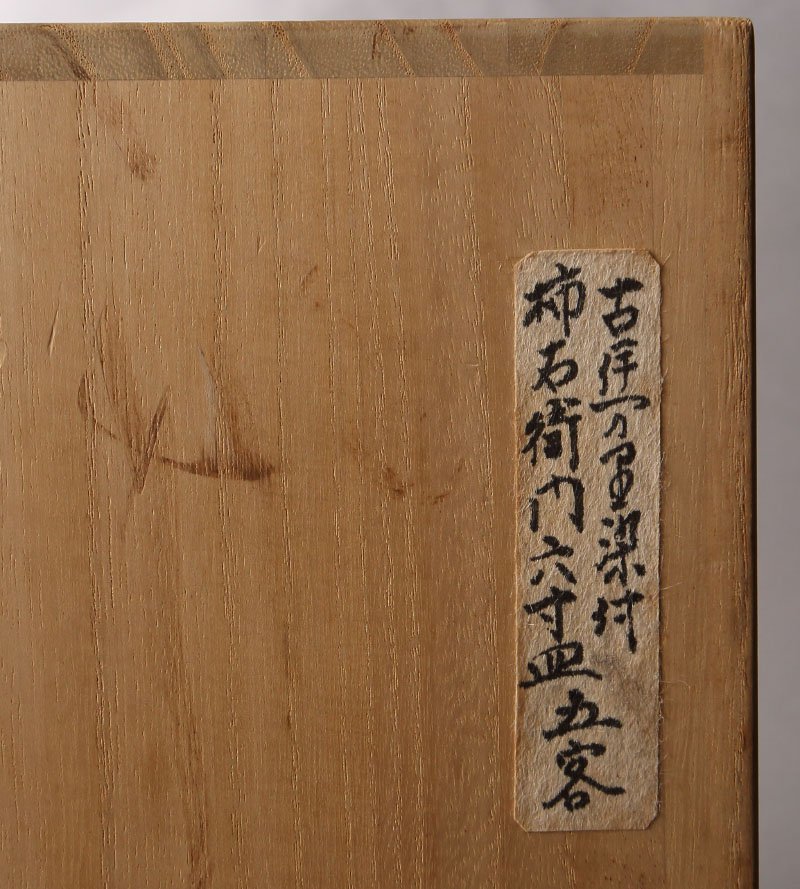 古伊万里染付
柿右衛門六寸皿五客